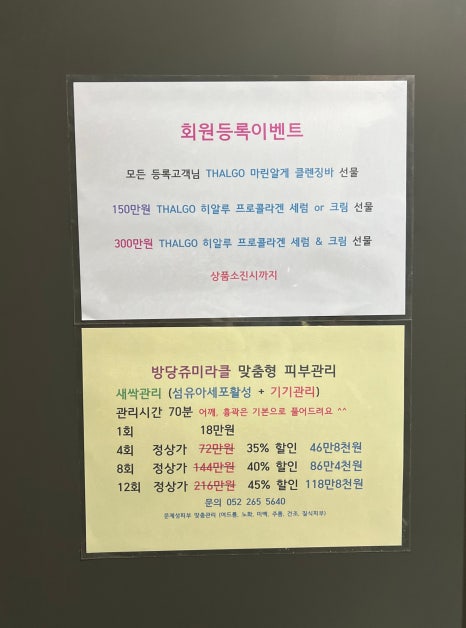 회원등록이벤트
모든 등록고객님 THALGO 마린알게 클렌징바 선물
150만원 THALGO 히알루 프로콜라겐 세럼 or 크림 선물
300만원 THALGO 히알루 프로콜라겐 세럼 & 크림 선물
상품소진시까지
방당쥬미라클 맞춤형 피부관리
새싹관리 (섬유아세포활성 + 기기관리)
관리시간 70분 어깨, 흉곽은 기본으로 풀어드려요 ^^
1회 18만원
4회 정상가 72만원 35% 할인 46만8천원
8회 정상가 144만원 40% 할인 86만4천원
12회 정상가 216만원 45% 할인 118만8천원
문의 052 265 5640
문제성피부 맞춤관리 (여드름, 노화, 미백, 주름, 건조, 질식피부)